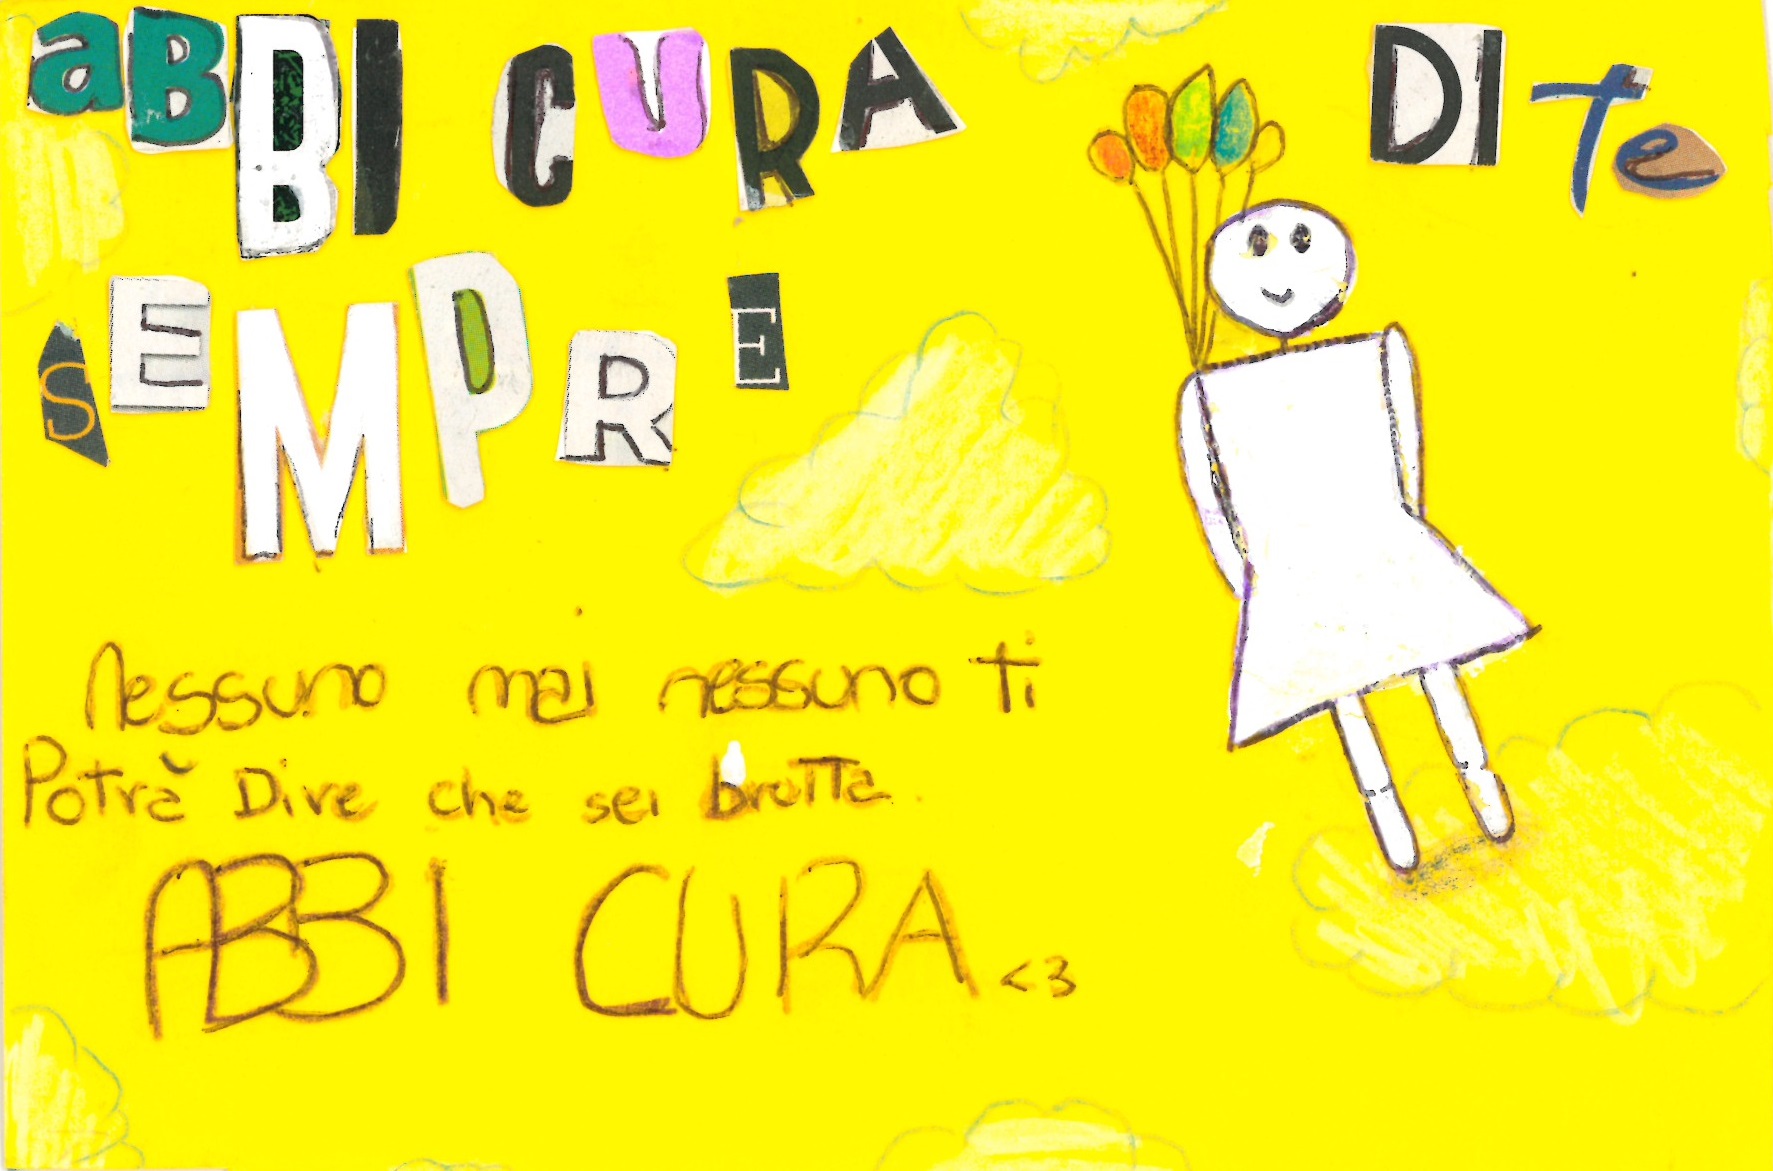 aBBI CURA DI Te
SEMPRE
Nessuno mai nessuno ti
Potrà Dire che sei brutta.
ABBI CURA <3